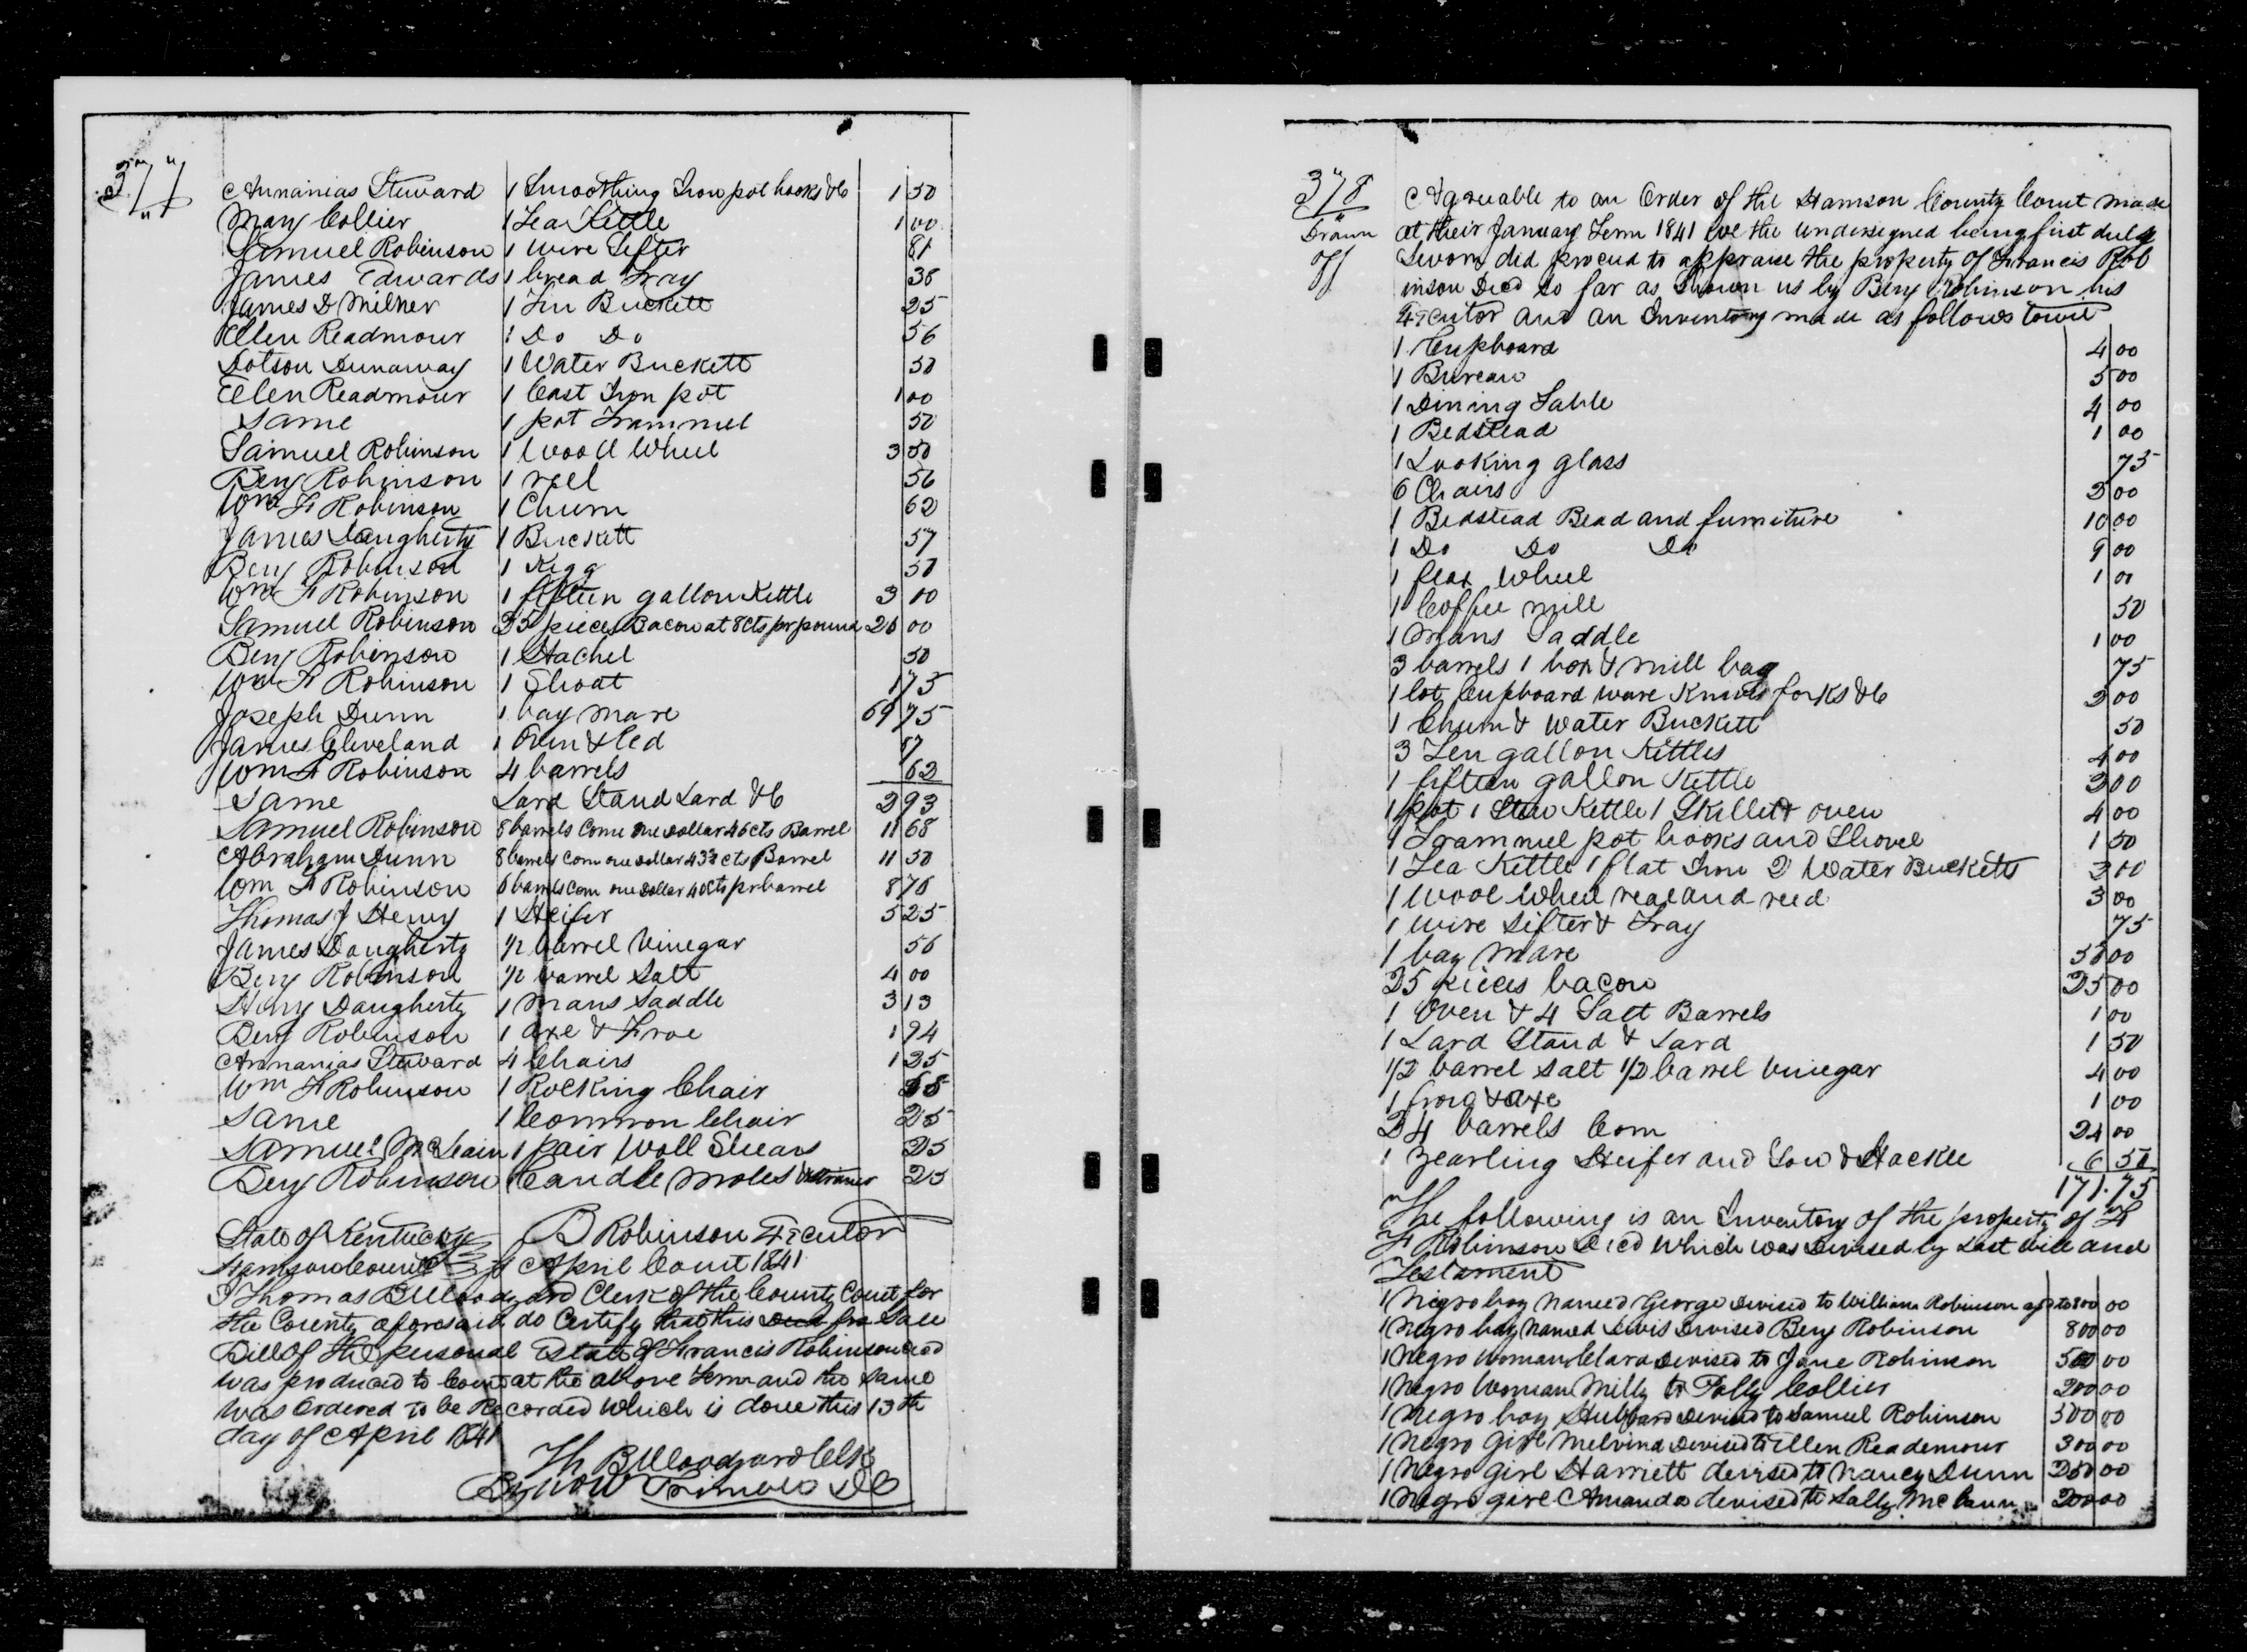 377
Annanias Steward 1 Smoothing Iron pot hooks &c 1 50
Mary Collier 1 Tea Kettle 1 00
Samuel Robinson 1 wire Sifter 81
James Edwards 1 bread Tray 38
James D Milner 1 Tin Buckett 25
Ellen Readmour 1 Do Do 56
Dotson Dunaway 1 Water Buckett 50
Ellen Readmour 1 Cast Iron pot 1 00
Same 1 pot Trammel 50
Samuel Robinson 1 Wooll Wheel 3 50
Benj Robinson 1 reel 56
Wm F Robinson 1 Churn 62
James Daugherty 1 Buckett 57
Benj Robinson 1 Kegg 50
Wm F Robinson 1 fifteen gallon Kettle 3 00
Samuel Robinson 25 pieces Bacon at 8 cts pr pound 26 00
Benj Robinson 1 Hachel 50
Wm F Robinson 1 Shoat 1 75
Joseph Dunn 1 bay Mare 69 75
James Cleveland 1 Oven & led
Wm F Robinson 4 barrels 62
Same Lard Stand Lard &c 2 93
Samuel Robinson 8 barrels Corn one Dollar 46 cts Barrel 11 68
Abraham Dunn 8 barrels Corn one Dollar 43¾ cts Barrel 11 50
Wm F Robinson 6 barrels Corn one Dollar 46 cts pr barrel 8 76
Thomas J Henry 1 Heifer 5 25
James Daugherty 1/2 barrel Vinegar 56
Benj Robinson 1/2 barrel Salt 4 00
Henry Daugherty 1 Mans Saddle 3 13
Benj Robinson 1 axe & Froe 1 94
Annanias Steward 4 Chairs 1 25
Wm F Robinson 1 Rocking Chair
Same 1 Common Chair 25
Samuel McLain 1 pair Wooll Shears 25
Benj Robinson Candle Moles & Strainer 25
B Robinson Executor
State of Kentucky
Harrison County Sct April Court 1841
I Thomas B Woodyard Clerk of the County Court for
the County aforesaid do Certify that this Deed fro Sale
Bill of the personal Estate of Francis Robinson decd
was produced to Court at the above Term and the same
was Ordered to be Recorded which is done this 13th
day of April 1841
Th B Woodyard Clk
By Wm Trimble DC
378
Drawn
off
Agreeable to an Order of the Harrison County Court made
at their January Term 1841 we the Undersigned being first duly
Sworn did proceed to appraise the property of Francis Rob
inson Decd so far as Shown us by Benj Robinson his
Executor and an Inventory made as follows towit
1 Cupboard 4 00
1 Bureau 5 00
1 Dining Table 4 00
1 Bedstead 1 00
1 Looking glass 75
6 Chairs 3 00
1 Bedstead Bead and furniture 10 00
1 Do Do Do 9 00
1 flax Wheel 1 00
1 Coffee mill 50
1 Mans Saddle 1 00
3 barrels 1 box & mill bag 75
1 lot Cupboard ware Knives forks &c 3 00
1 Churn & Water Buckett 50
3 Ten gallon Kettles 4 00
1 fifteen gallon Kettle 3 00
1 pot 1 Stew Kettle 1 Skillet & oven 4 00
1 Trammel pot hooks and Shovel 1 50
1 Tea Kettle 1 flat Iron 2 Water Bucketts 3 00
1 Wool Wheel real and reed 3 00
1 Wire Sifter & Tray 75
1 bay Mare 50 00
25 pieces bacon 25 00
1 Oven & 4 Salt Barrels 1 00
1 Lard Stand & Lard 1 50
1/2 barrel Salt 1/2 barrel Vinegar 4 00
1 frow & axe 1 00
24 barrels Corn 24 00
1 Yearling Heifer and Cow & Stackle 6 50
171.75
The following is an Inventory of the property of
F Robinson Decd which was Devised by Last Will and
Testament
1 Negro boy Named George Devised to William Robinson apd to 800 00
1 Negro boy Named Lewis Devised Benj Robinson 800 00
1 Negro Woman Clara Devised to Jane Robinson 500 00
1 Negro Woman Milly to Polly Collier 200 00
1 Negro boy Hubbard Devised to Samuel Robinson 500 00
1 Negro Girl Melvina Devised to Ellen Reademour 300 00
1 Negro Girl Harriett devised to Nancy Dunn 250 00
1 Negro girl Amanda devised to Sally McCann 200 00